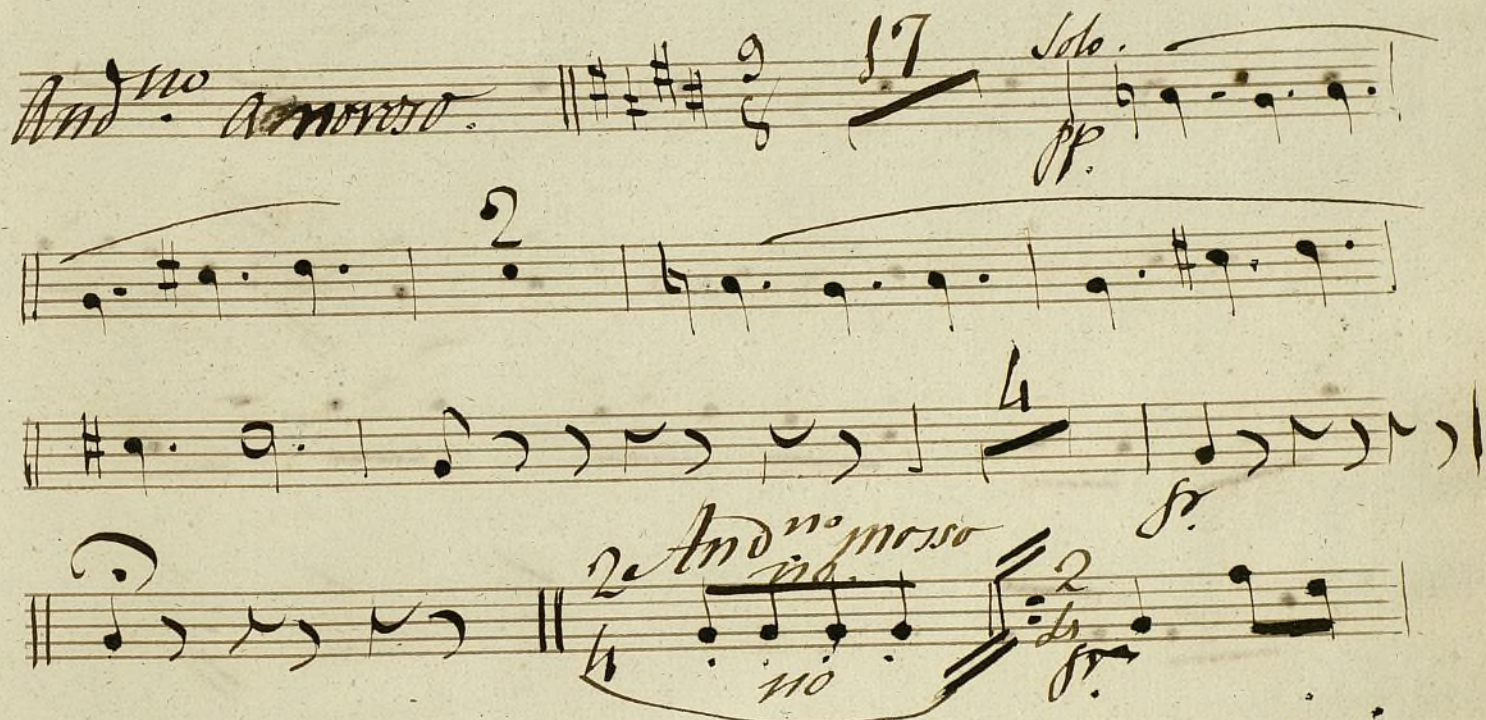 And.no amoroso. 9 8 17 Solo.
pp.
2
4
fr.
2 And.no mosso 2
no.
4 no 4 fr.